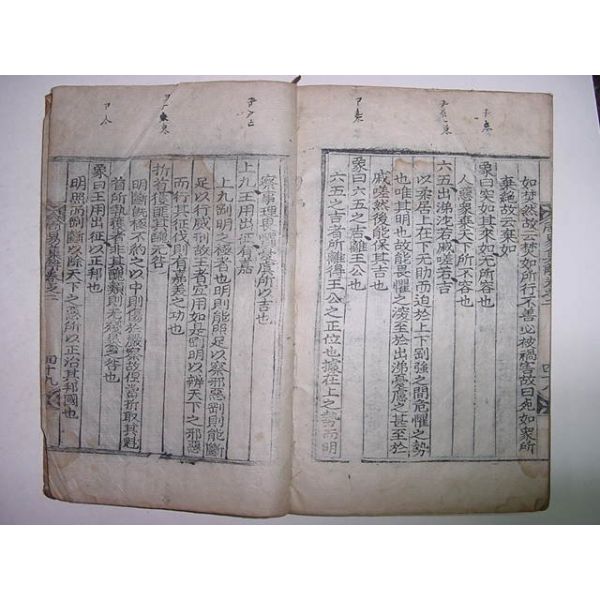 如焚然故云焚如所行不善必被禍害故曰死如衆所
棄絶故云棄如
象曰突如其來如无所容也
人惡衆棄天下所不容也
六五出涕沱若戚嗟若吉
以柔居上在下无助而迫於上下剛強之間危懼之勢
也唯其明也故能畏懼之深至於出涕憂慮之甚至於
戚嗟然後能保其吉也
象曰六五之吉離王公也
六五之吉者所離得王公之正位也據在上之勢而明
察事理畏懼憂虞所以吉也
上九王用出征有嘉
上九剛明之極者也明則能照足以察邪惡剛則能斷
足以行威刑故王者宜用如是剛明以辨天下之邪惡
而行其征伐則有嘉美之功
折首獲匪其醜无咎
明斷旣極之以中則傷於嚴察故但當折取其魁
首所執獲者非其醜類則无殘暴之咎也
象曰王用出征以正邦也
明照而剛斷以除天下之惡所以正治其邦國也
四十九